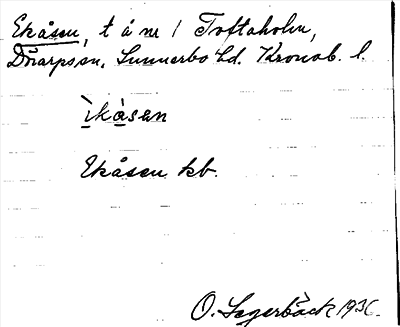 Ekåsen, t å nr 1 Toftaholm,
Dörarpssn, Sunnerbo hd. Kronob. l.
ìkàsan
Ekåsen kb.
O. Lagerbäck 1936.